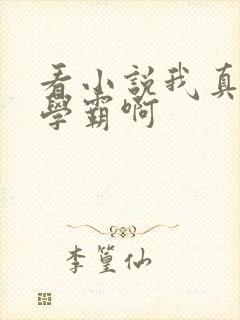 看小說我真
學霸啊
李篁仙